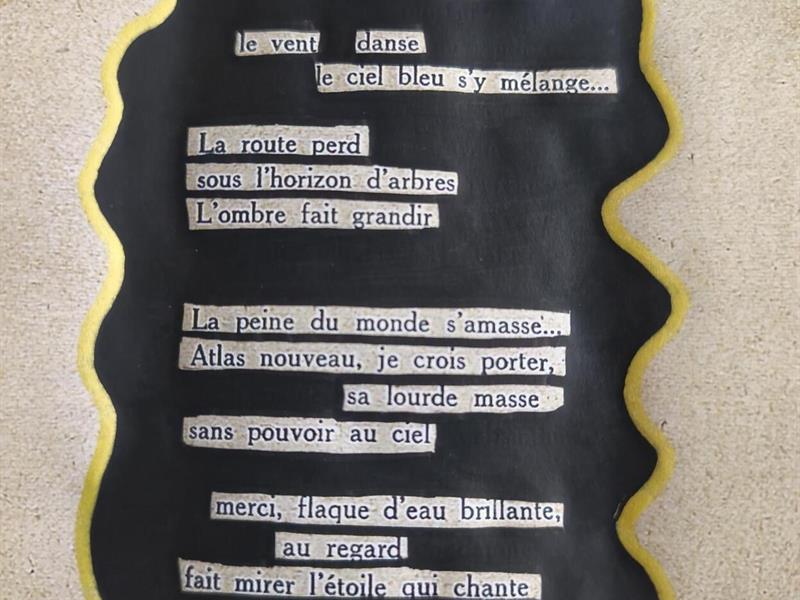 le vent danse
le ciel bleu s'y mélange...
La route perd
sous l'horizon d'arbres
L'ombre fait grandir
La peine du monde s'amasse...
Atlas nouveau, je crois porter,
sa lourde masse
sans pouvoir au ciel
merci, flaque d'eau brillante,
au regard
fait mirer l'étoile qui chante